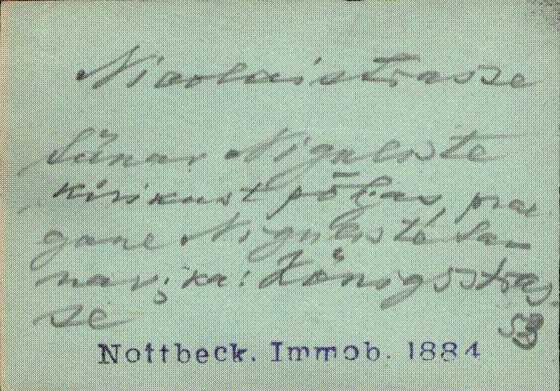 Nicolaistrasse
Tänav Niguliste
kirikust põhjas, prae
gune Niguliste tä-
nav; ka: Königsstras
se
53
Nottbeck. Immob. 1884